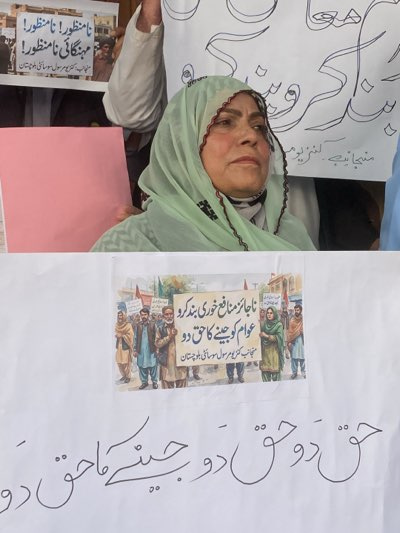 نامنظور! نامنظور!
مہنگائی نامنظور!
منجانب کنزیومر سول سوسائٹی بلوچستان
بند کرو بند کرو
منجانب۔ کنزیومر
ناجائز منافع خوری بند کرو
عوام کو جینے کا حق دو
منجانب کنزیومر سول سوسائٹی بلوچستان
حق دو حق دو جینے کا حق دو